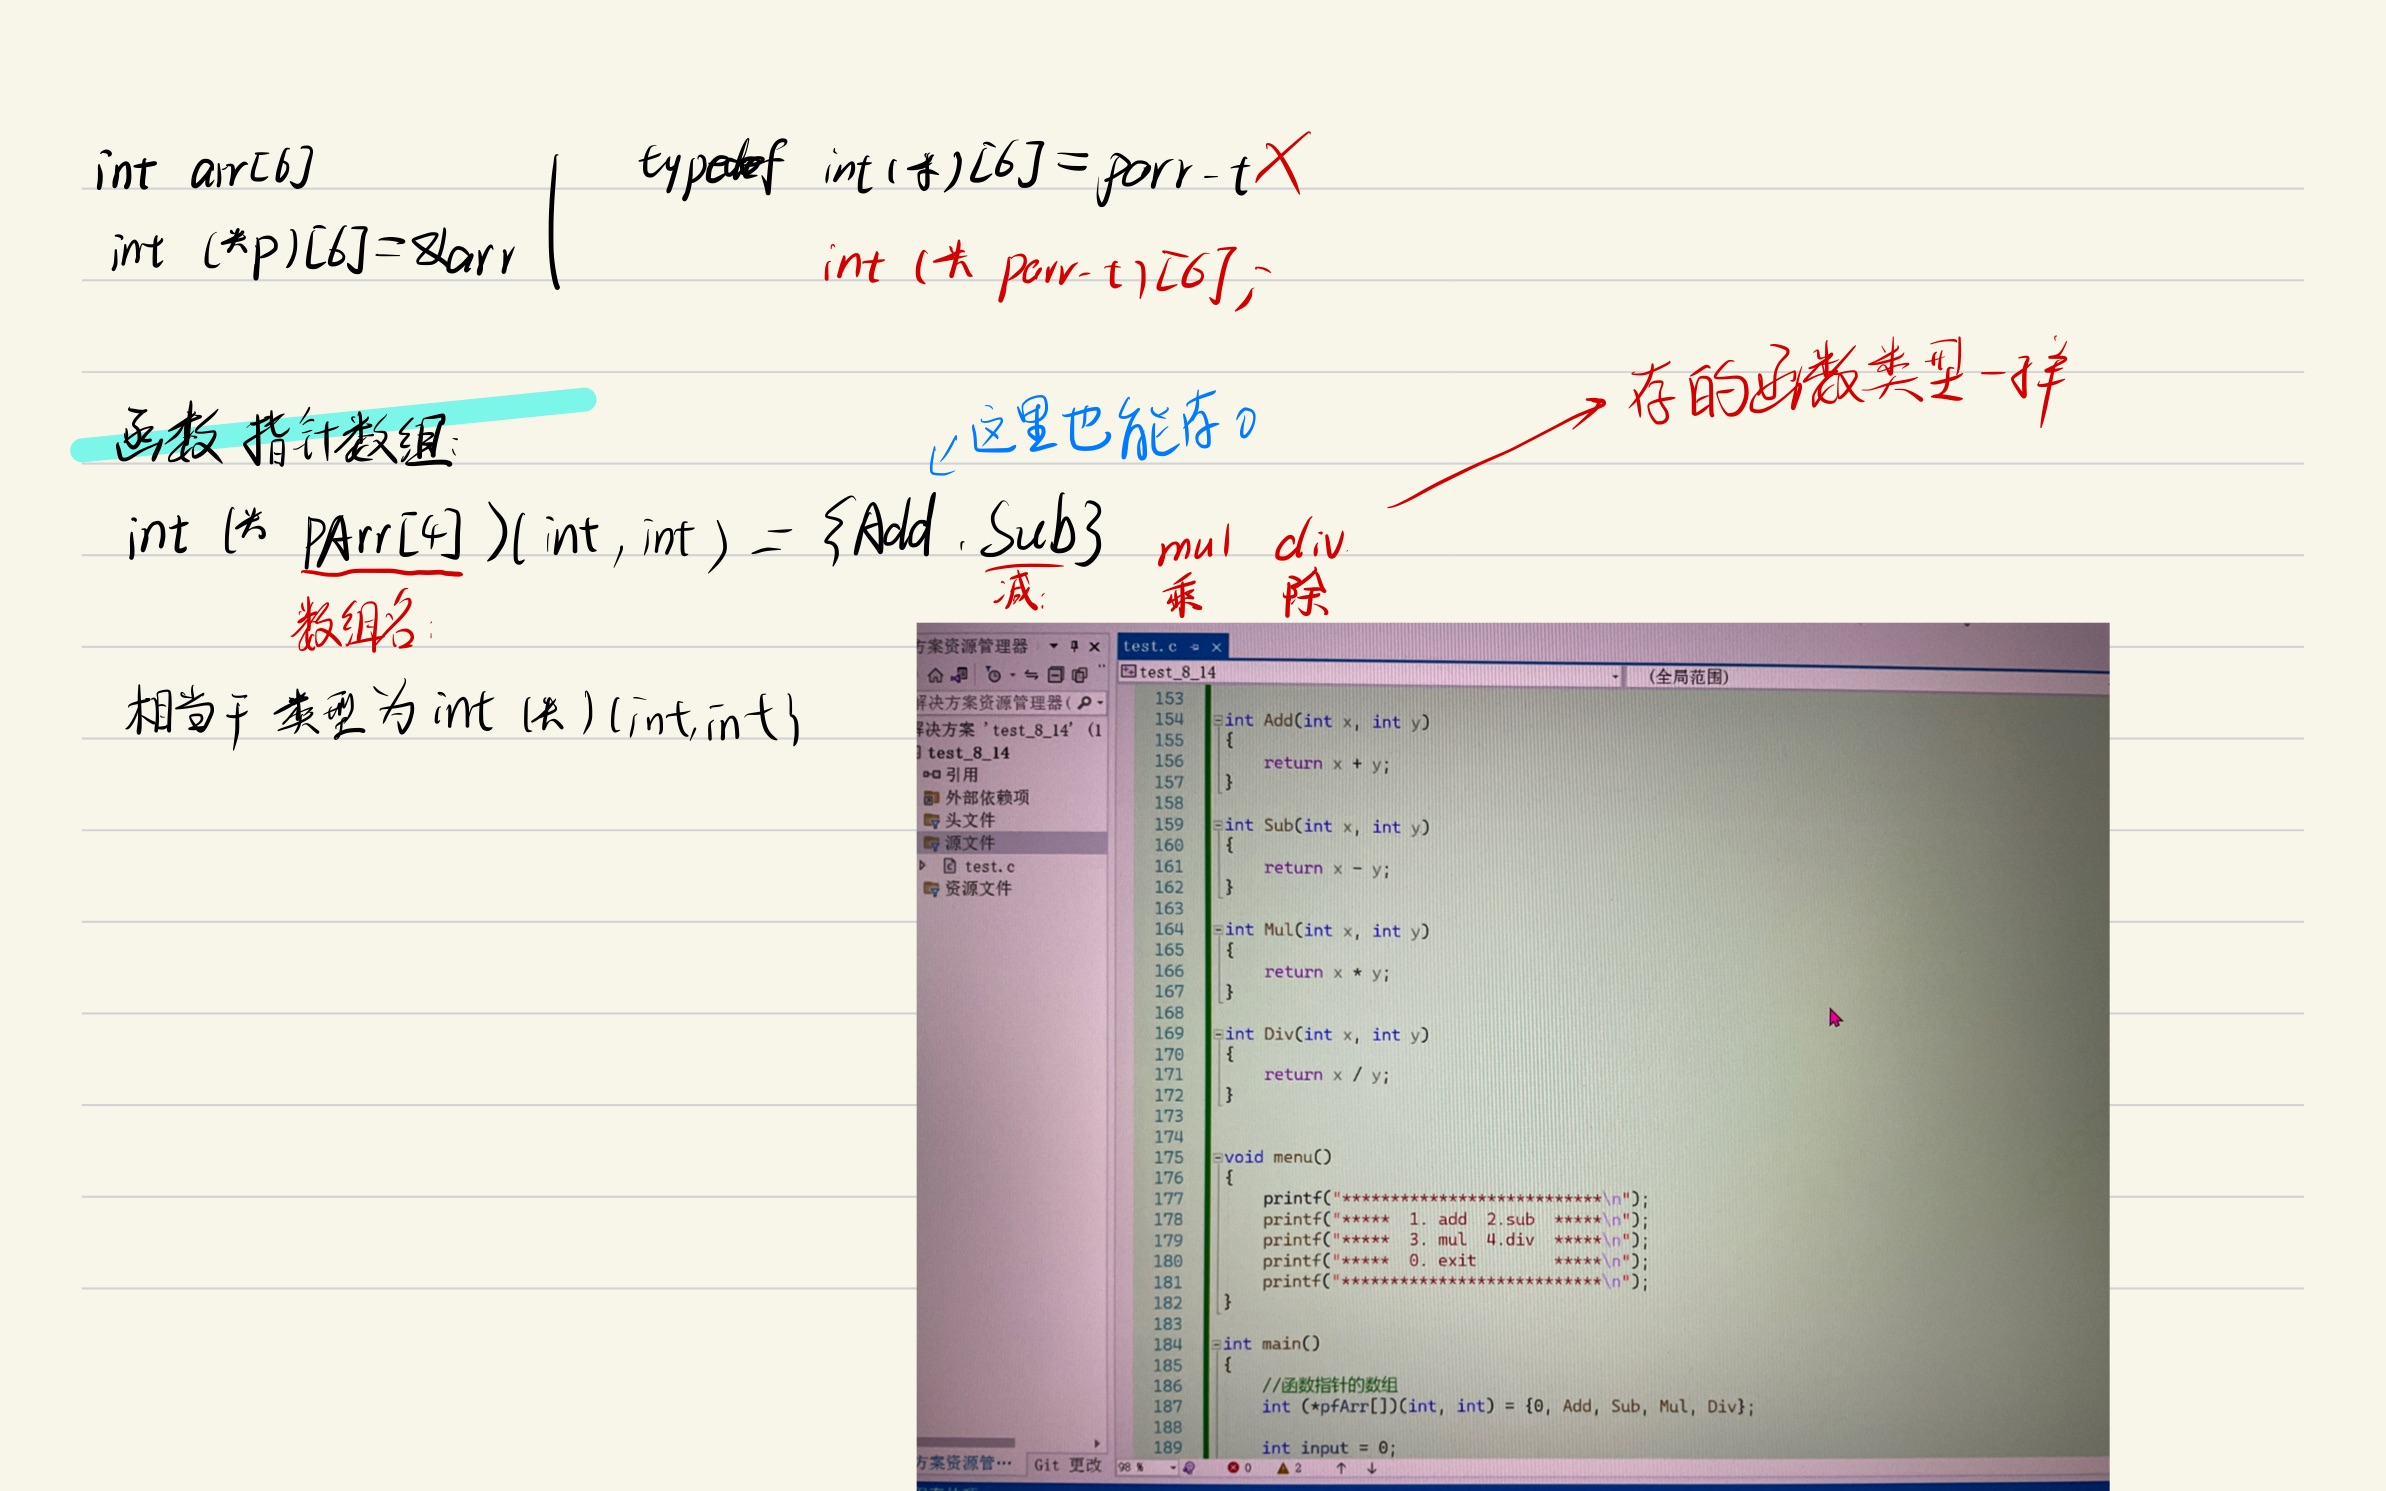 int arr[6]
int (*p)[6]=&arr
typedef int(*)[6]=parr-t X
int (* parr-t)[6];
函数指针数组:
这里也能存0
存的函数类型一样
int (* pArr[4])(int, int) = {Add, Sub} mul div
数组名:
减: 乘 除
相当于类型为int (*)(int,int)
方案资源管理器
test.c
test_8_14
(全局范围)
解决方案资源管理器(
解决方案 'test_8_14' (1
test_8_14
引用
外部依赖项
头文件
源文件
test.c
资源文件
153
154 int Add(int x, int y)
155 {
156 return x + y;
157 }
158
159 int Sub(int x, int y)
160 {
161 return x - y;
162 }
163
164 int Mul(int x, int y)
165 {
166 return x * y;
167 }
168
169 int Div(int x, int y)
170 {
171 return x / y;
172 }
173
174
175 void menu()
176 {
177 printf("***************************\n");
178 printf("***** 1. add 2.sub *****\n");
179 printf("***** 3. mul 4.div *****\n");
180 printf("***** 0. exit *****\n");
181 printf("***************************\n");
182 }
183
184 int main()
185 {
186 //函数指针的数组
187 int (*pfArr[])(int, int) = {0, Add, Sub, Mul, Div};
188
189 int input = 0;
方案资源管… Git 更改
98 % 0 2